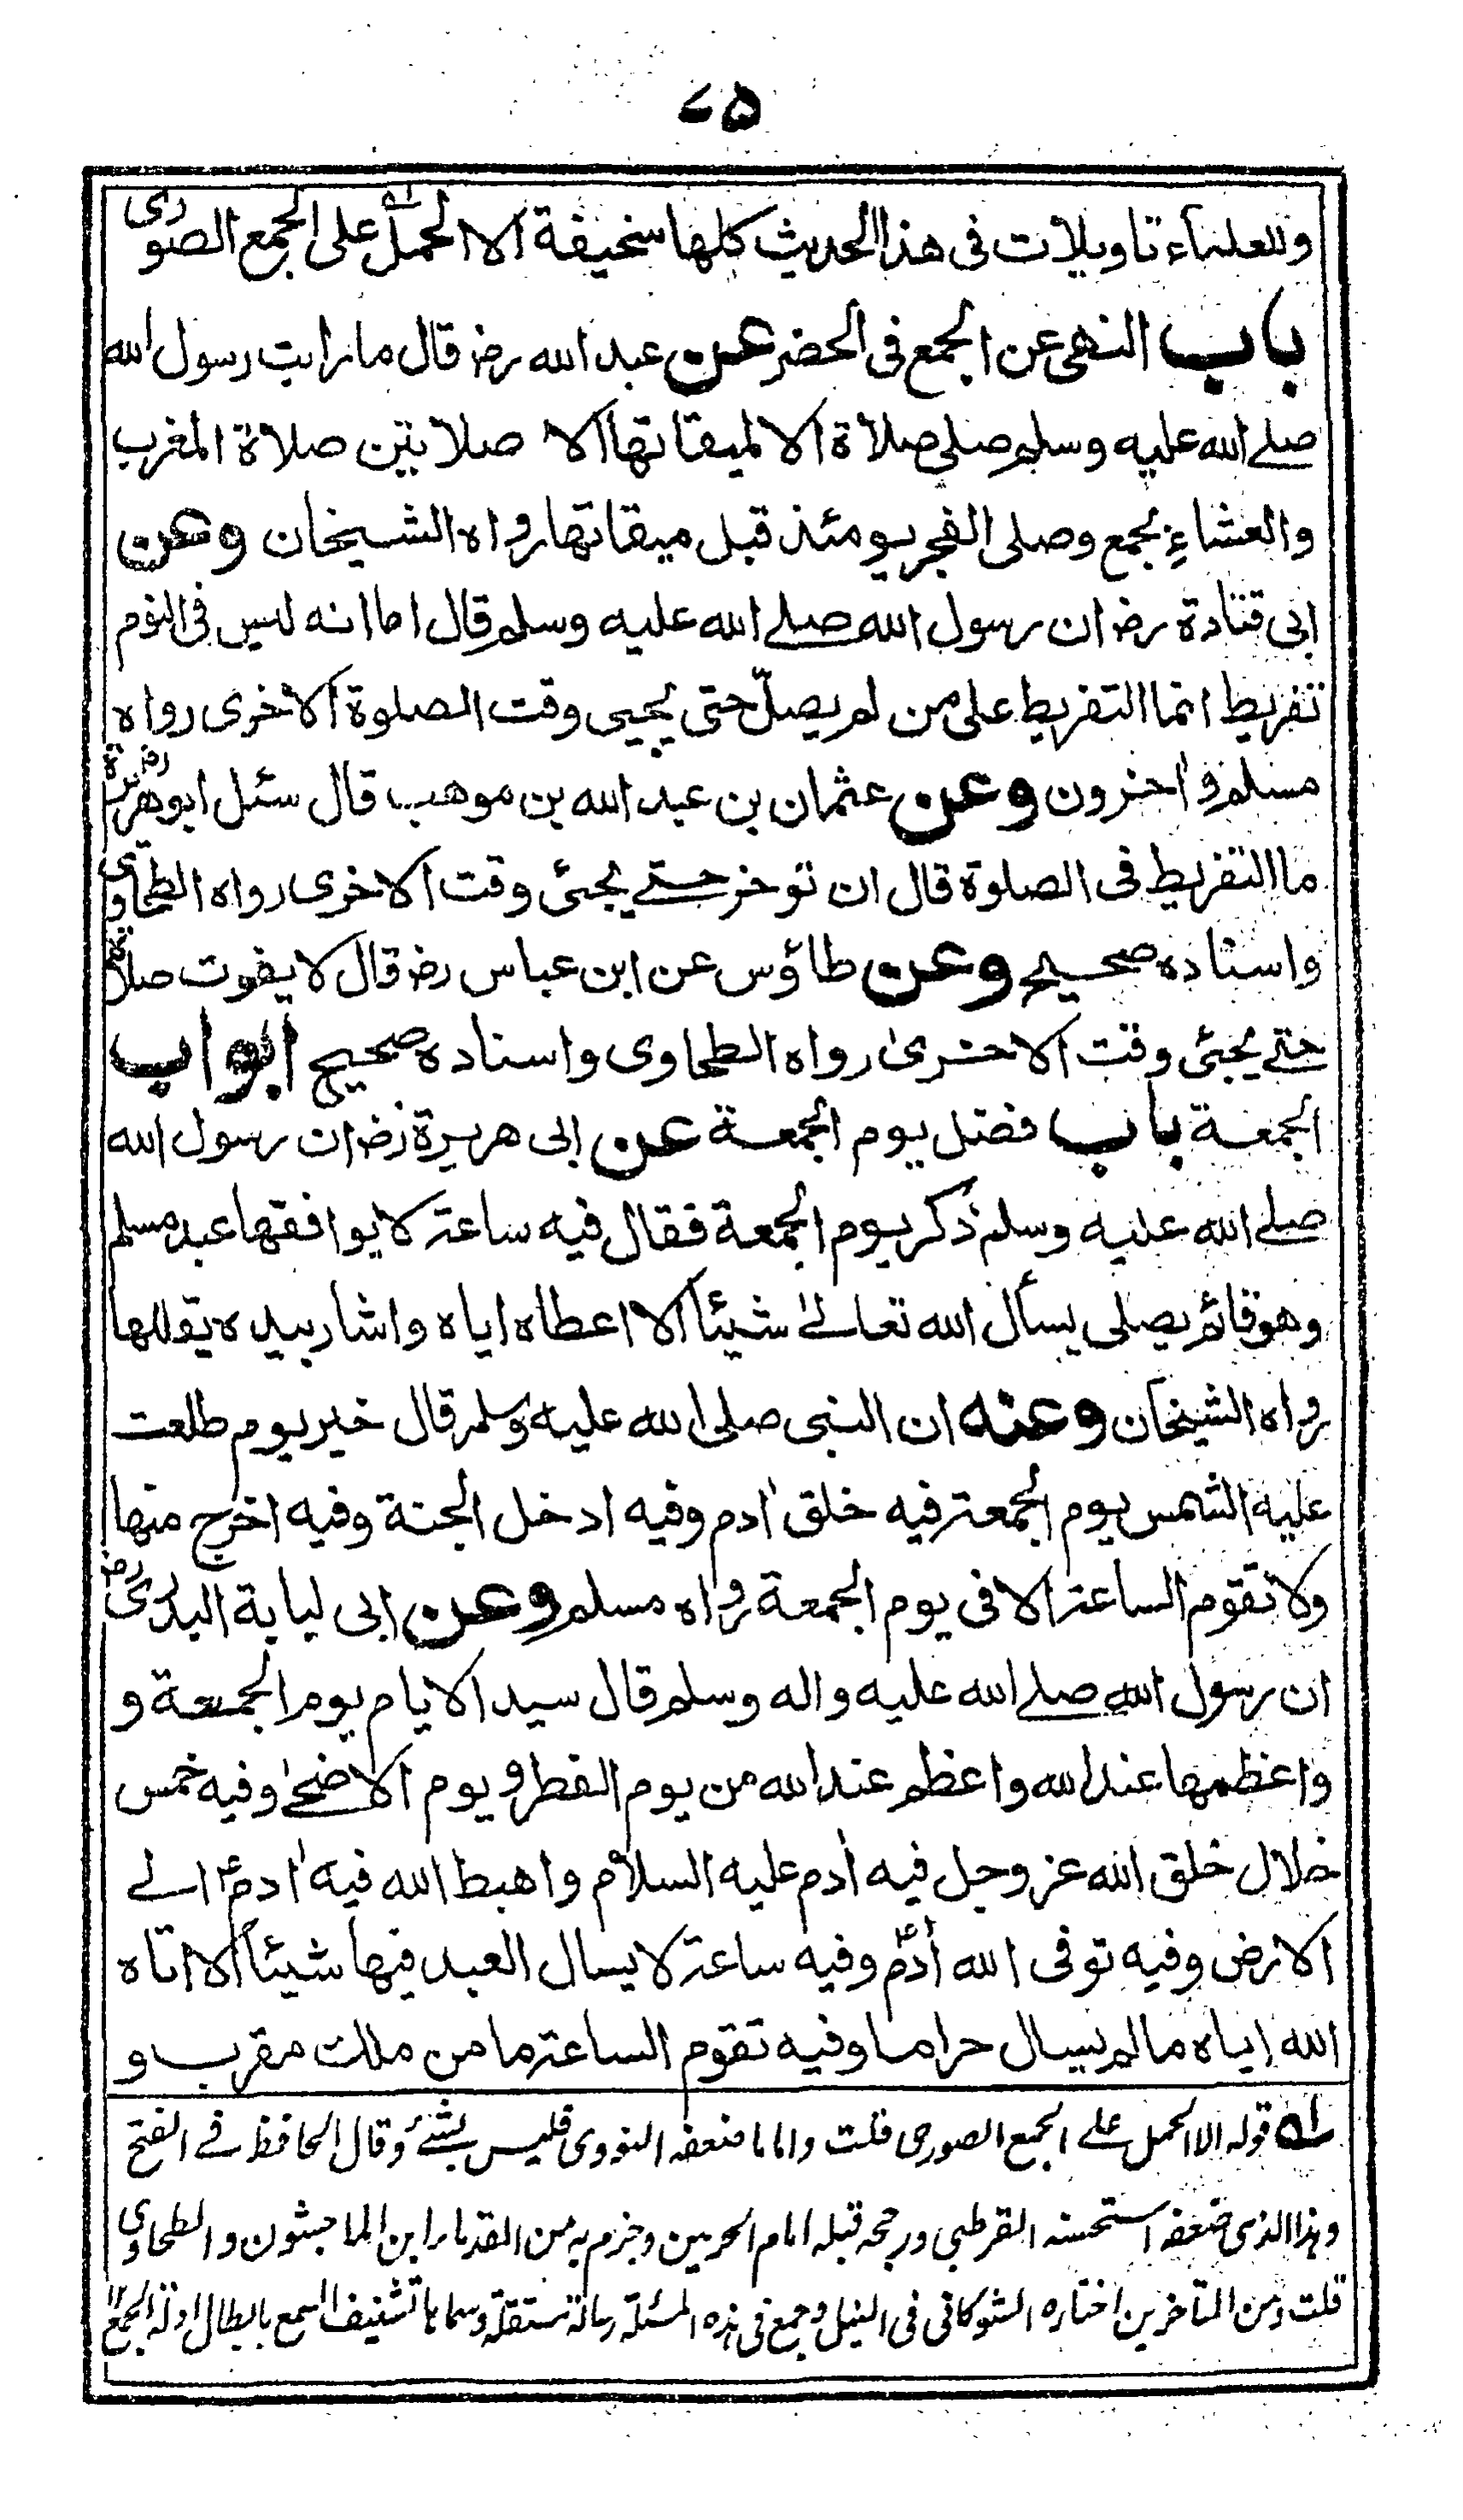 ٧٥
وللعلمآء تاويلات فى هذا الحديث كلها سخيفة الا الحمل على الجمع الصورى
باب النهى عن الجمع فى الحضر عن عبد الله رض قال ما رايت رسول الله
صلے الله عليه وسلم صلى صلاة الا لميقاتها الا صلاتين صلاة المغرب
والعشاء بجمع وصلى الفجر يومئذ قبل ميقاتها رواه الشيخان وعن
ابى قتادة رض ان رسول الله صلے الله عليه وسلم قال اما انه ليس فى النوم
تفريط انما التفريط على من لم يصلّ حتى يجيى وقت الصلوة الاخرى رواه
مسلم واٰخرون وعن عثمان بن عبد الله بن موهب قال سئل ابو هريرة رض
ما التفريط فى الصلوة قال ان توخر حتے يجئى وقت الاخرى رواه الطحاوى
واسناده صحيح وعن طاؤس عن ابن عباس رض قال لا يفوت صلاة
حتے يجئى وقت الاخرىٰ رواه الطحاوى واسناده صحيح ابواب
الجمعة باب فضل يوم الجمعة عن ابى هريرة رض ان رسول الله
صلے الله عليه وسلم ذكر يوم الجمعة فقال فيه ساعة لا يوافقها عبد مسلم
وهو قائم يصلى يسأل الله تعالےٰ شيئاً الا اعطاه اياه واشار بيده يقللها
رواه الشيخان وعنه ان النبى صلى الله عليه وسلم قال خير يوم طلعت
عليه الشمس يوم الجمعة فيه خلق اٰدم وفيه ادخل الجنة وفيه اخرج منها
ولا تقوم الساعة الا فى يوم الجمعة رواه مسلم وعن ابى لبابة البدرى رض
ان رسول الله صلے الله عليه واله وسلم قال سيد الايام يوم الجمعة و
واعظمها عند الله واعظم عند الله من يوم الفطر ويوم الاضحےٰ وفيه خمس
خلال خلق الله عز وجل فيه اٰدم عليه السلام واهبط الله فيه اٰدم ؑ الے
الارض وفيه توفى الله اٰدم ؑ وفيه ساعة لا يسال العبد فيها شيئاً الا اتاه
الله اياه ما لم يسال حراما وفيه تقوم الساعة ما من ملك مقرب و
لـه قوله الا الحمل علے الجمع الصورى قلت واما ما ضعفه النووى فليس بشئے وقال الحافظ فے الفتح
وهذا الذى ضعفه استحسنه القرطبى ورجحه قبله امام الحرمين وجزم به من القدماء ابن الماجشون والطحاوى
قلت ومن المتأخرين اختاره الشوكانى فى النيل وجمع فى هذه المسئلة رسالة مستقلة وسماها تشنيف السمع بابطال ادلة الجمع